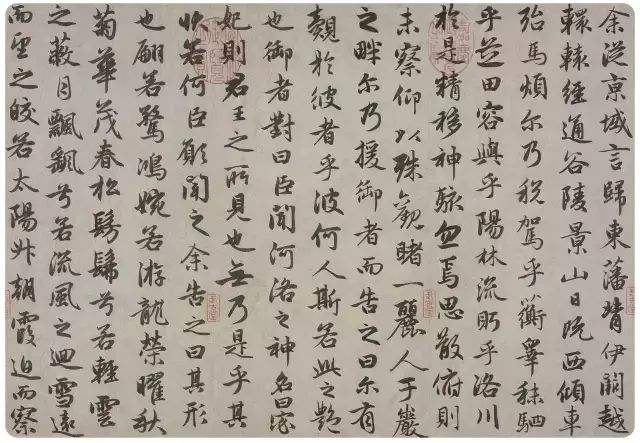 余從京域言歸東藩背伊闕越
轘轅經通谷陵景山日既西傾車
殆馬煩尔乃稅駕乎蘅皋秣駟
乎芝田容與乎陽林流眄乎洛川
於是精移神駭忽焉思散俯則
未察仰以殊觀睹一麗人于巖
之畔尔乃援御者而告之曰尔有
覿於彼者乎彼何人斯若此之艷
也御者對曰臣聞河洛之神名曰宓
妃則君王之所見也無乃是乎其
狀若何臣願聞之余告之曰其形
也翩若驚鴻婉若游龍榮曜秋
菊華茂春松髣髴兮若輕雲
之蔽月飄颻兮若流風之迴雪遠
而望之皎若太陽升朝霞迫而察